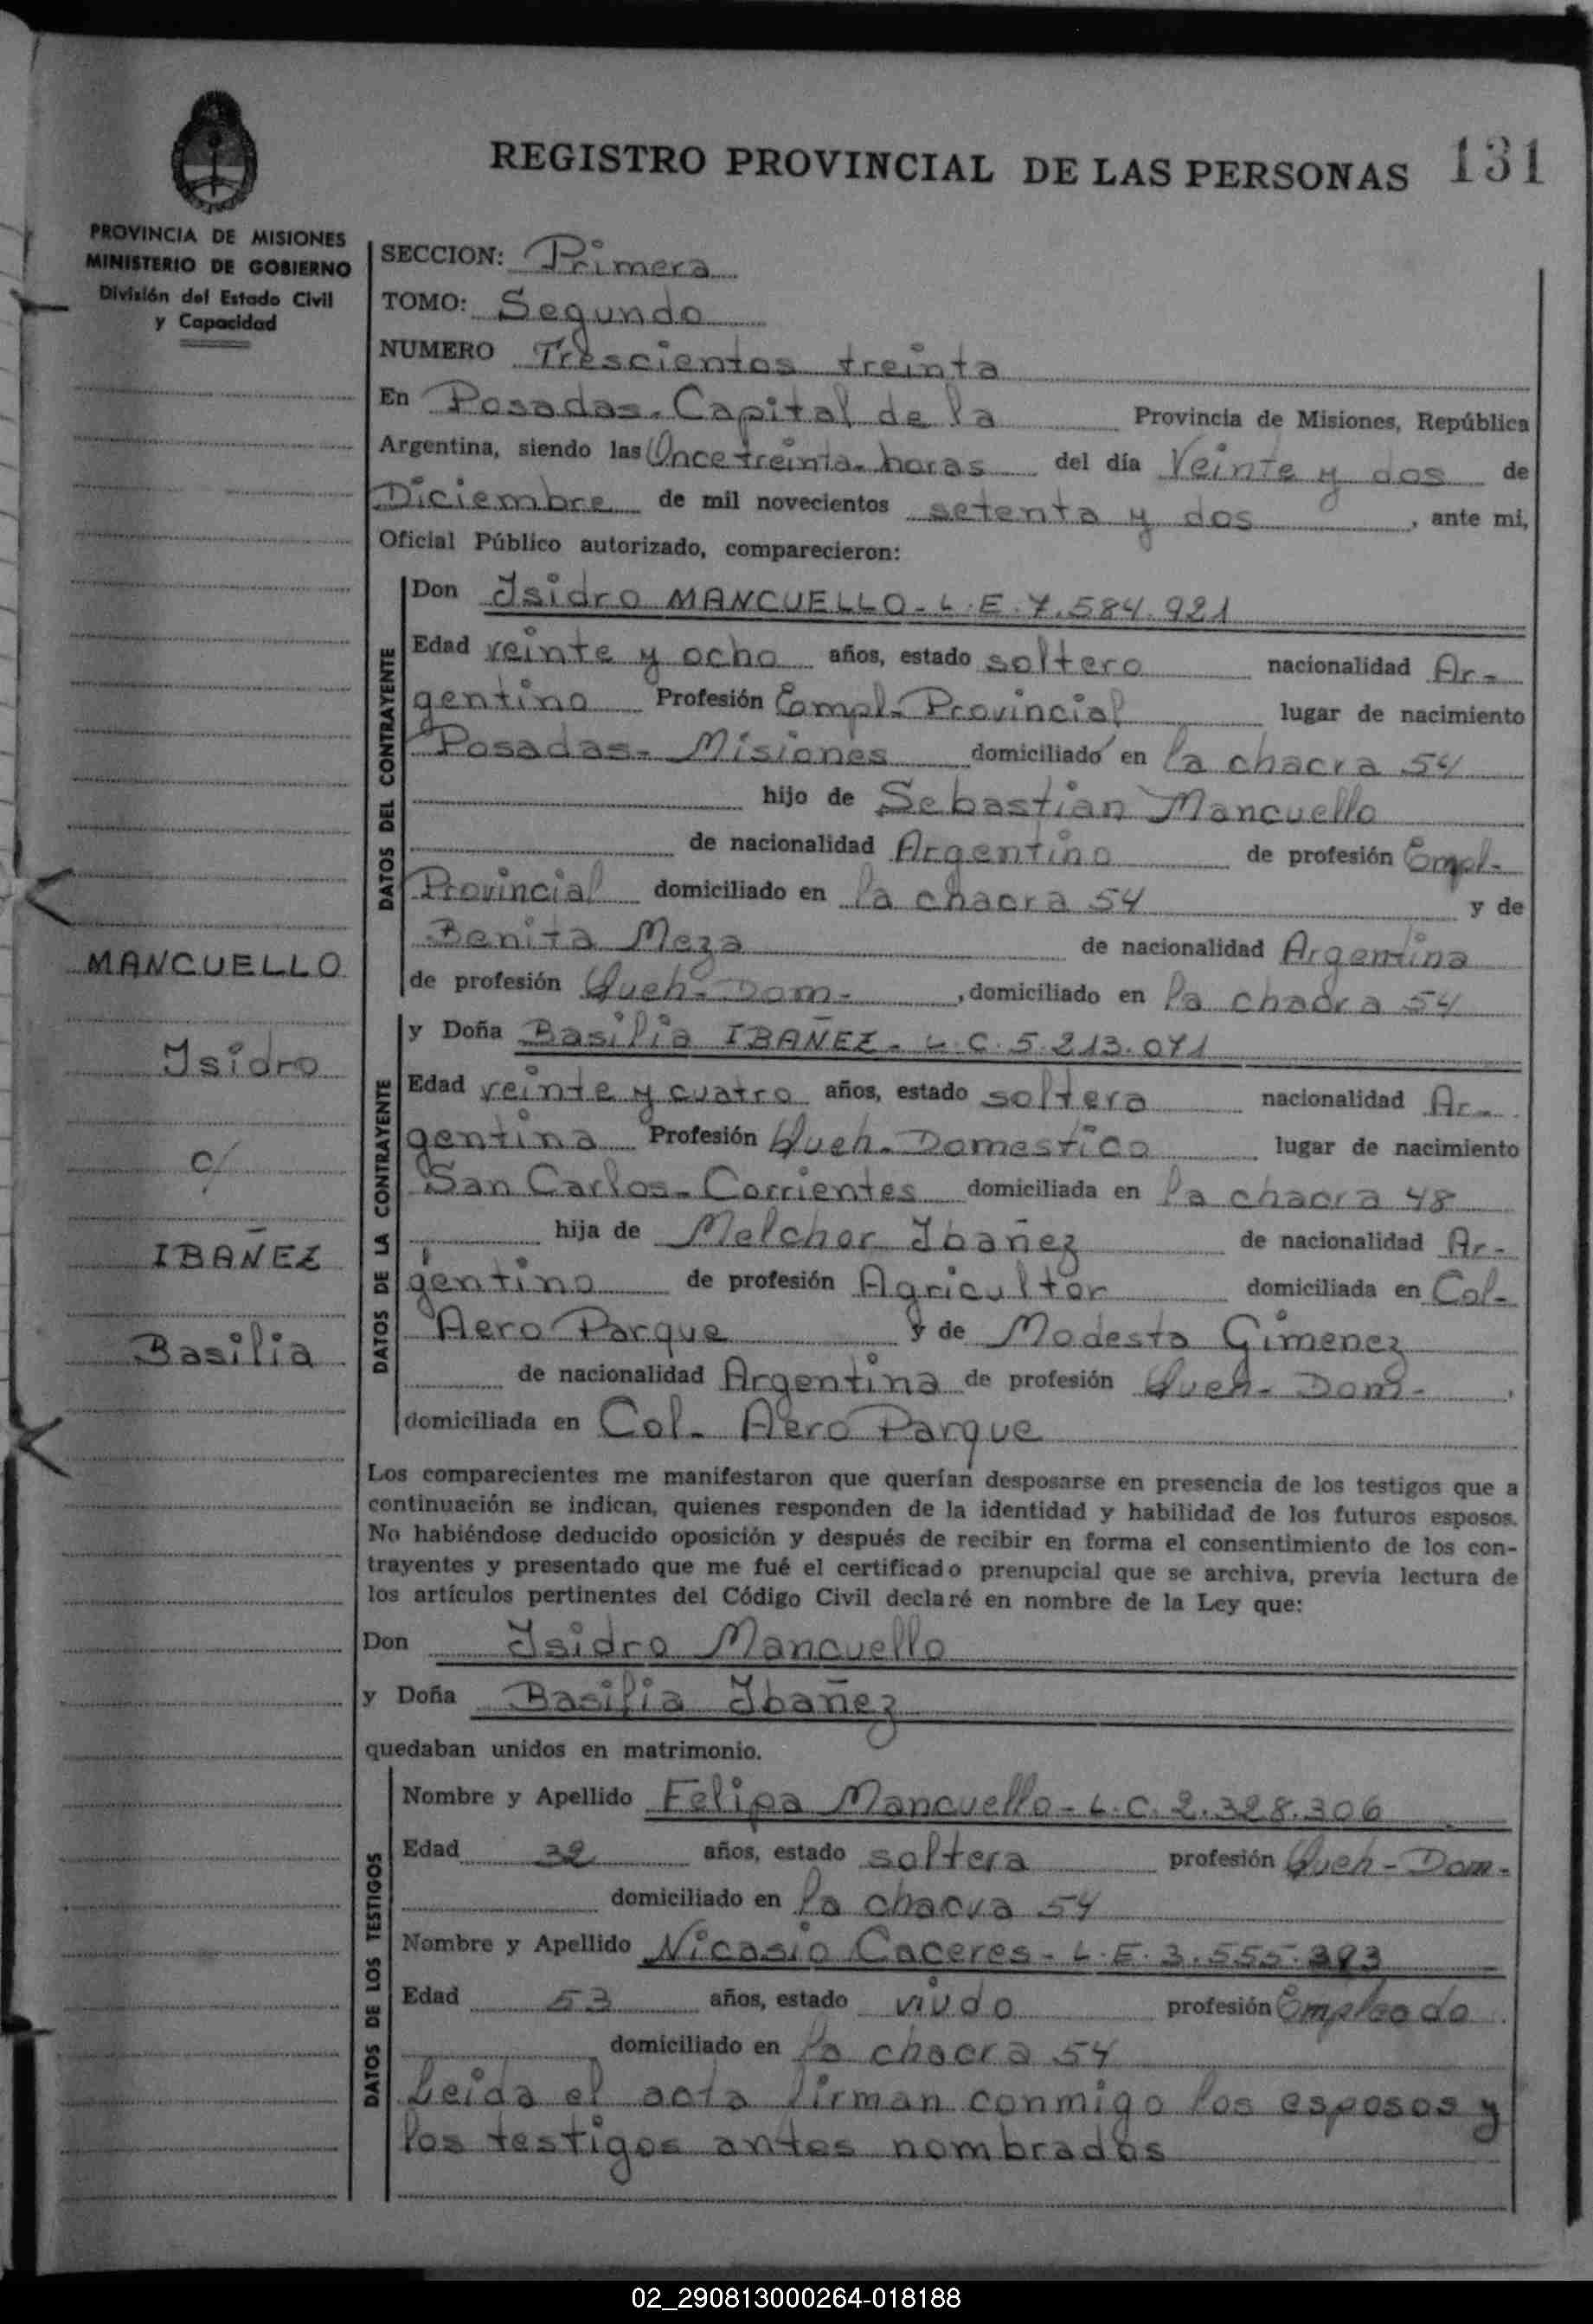 REGISTRO PROVINCIAL DE LAS PERSONAS 131
PROVINCIA DE MISIONES
MINISTERIO DE GOBIERNO
División del Estado Civil
y Capacidad
MANCUELLO
Isidro
c/
IBAÑEZ
Basilia
SECCION: Primera
TOMO: Segundo
NUMERO Trescientos treinta
En Posadas. Capital de la Provincia de Misiones, República
Argentina, siendo las Once treinta horas del día Veinte y dos de
Diciembre de mil novecientos setenta y dos, ante mi,
Oficial Público autorizado, comparecieron:
DATOS DEL CONTRAYENTE
Don Isidro MANCUELLO - L.E. 7.584.921
Edad veinte y ocho años, estado soltero nacionalidad Ar-
gentino Profesión Empl. Provincial lugar de nacimiento
Posadas - Misiones domiciliado en la chacra 54
hijo de Sebastian Mancuello
de nacionalidad Argentino de profesión Empl-
Provincial domiciliado en la chacra 54 y de
Benita Meza de nacionalidad Argentina
de profesión Queh- Dom-, domiciliado en la chacra 54
DATOS DE LA CONTRAYENTE
y Doña Basilia IBAÑEZ - L.C. 5.213.071
Edad veinte y cuatro años, estado soltera nacionalidad Ar-
gentina Profesión Queh- Domestico lugar de nacimiento
San Carlos - Corrientes domiciliada en la chacra 48
hija de Melchor Ibañez de nacionalidad Ar-
gentino de profesión Agricultor domiciliada en Col-
Aero Parque y de Modesta Gimenez
de nacionalidad Argentina de profesión Queh- Dom-,
domiciliada en Col. Aero Parque
Los comparecientes me manifestaron que querían desposarse en presencia de los testigos que a
continuación se indican, quienes responden de la identidad y habilidad de los futuros esposos.
No habiéndose deducido oposición y después de recibir en forma el consentimiento de los con-
trayentes y presentado que me fué el certificado prenupcial que se archiva, previa lectura de
los artículos pertinentes del Código Civil declaré en nombre de la Ley que:
Don Isidro Mancuello
y Doña Basilia Ibañez
quedaban unidos en matrimonio.
DATOS DE LOS TESTIGOS
Nombre y Apellido Felipa Mancuello - L.C. 2.328.306
Edad 32 años, estado soltera profesión Queh- Dom-
domiciliado en la chacra 54
Nombre y Apellido Nicasio Caceres - L.E. 3.555.393
Edad 53 años, estado viudo profesión Empleado
domiciliado en la chacra 54
Leida el acta firman conmigo los esposos y
los testigos antes nombrados
02_290813000264-018188